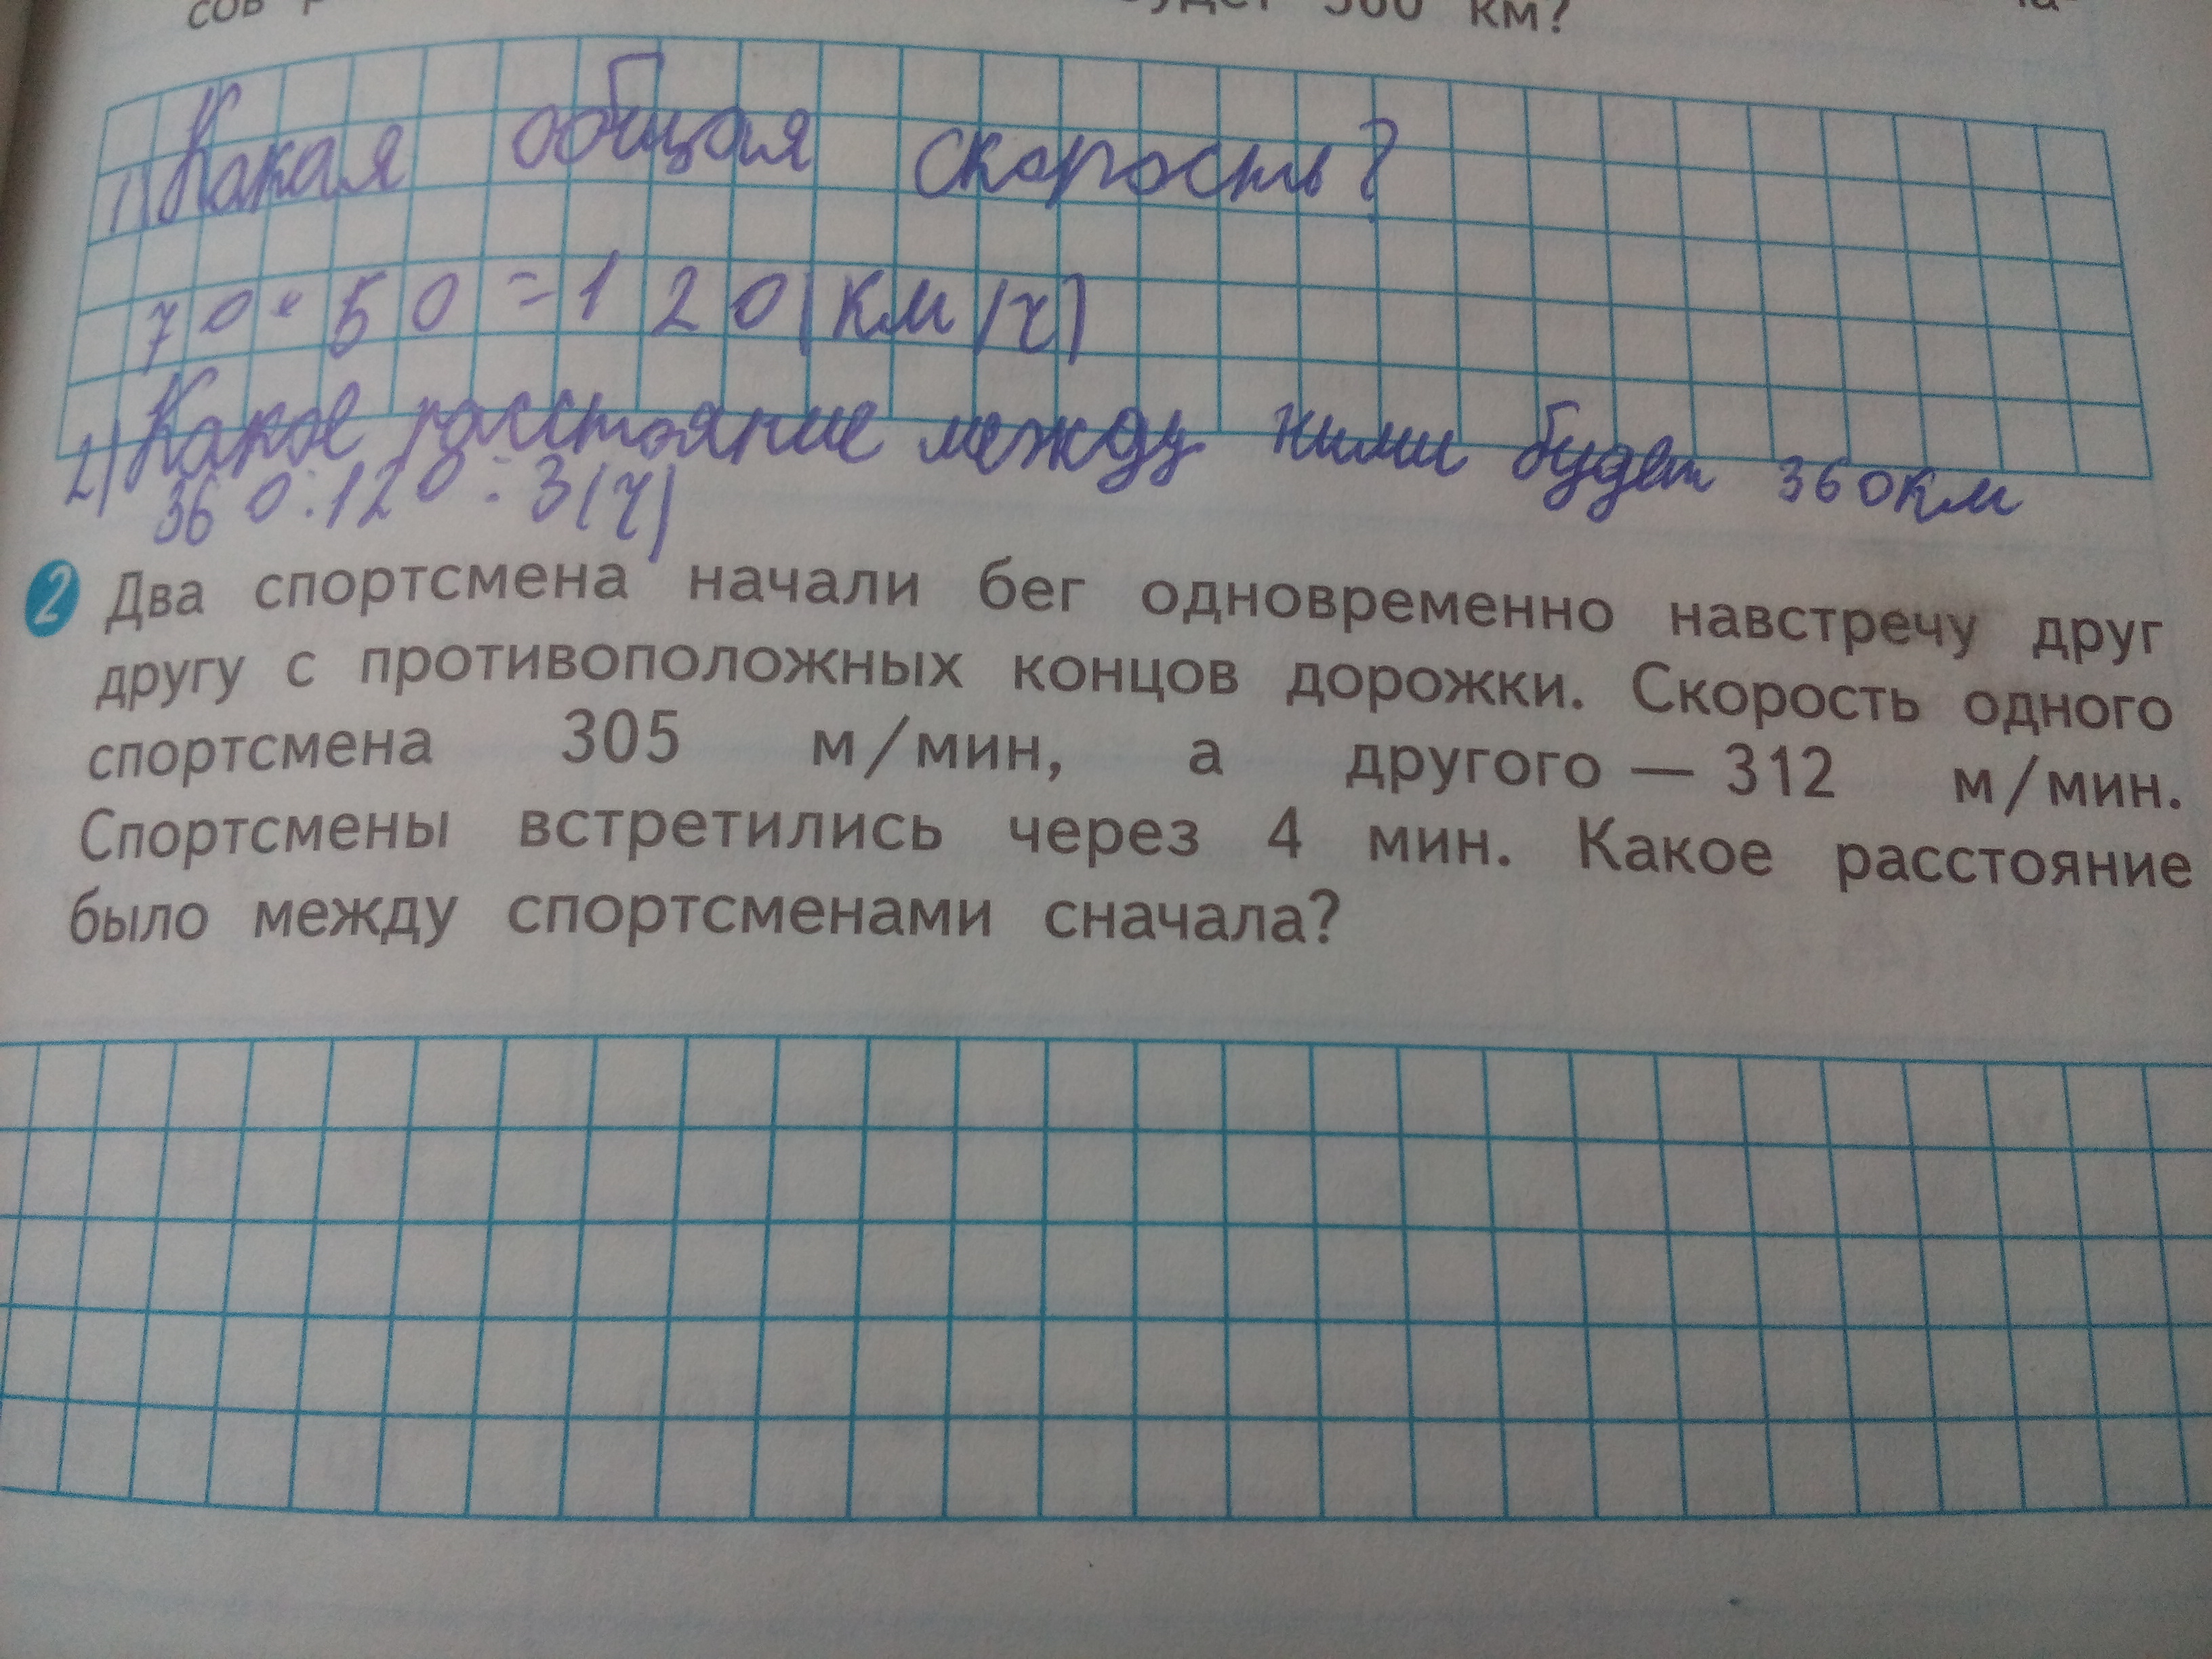 360 км?
1) Какая общая скорость?
70+50=120(км/ч)
2) Какое расстояние между ними будет 360км
360:120=3(ч)
2 Два спортсмена начали бег одновременно навстречу друг
другу с противоположных концов дорожки. Скорость одного
спортсмена 305 м/мин, а другого — 312 м/мин.
Спортсмены встретились через 4 мин. Какое расстояние
было между спортсменами сначала?